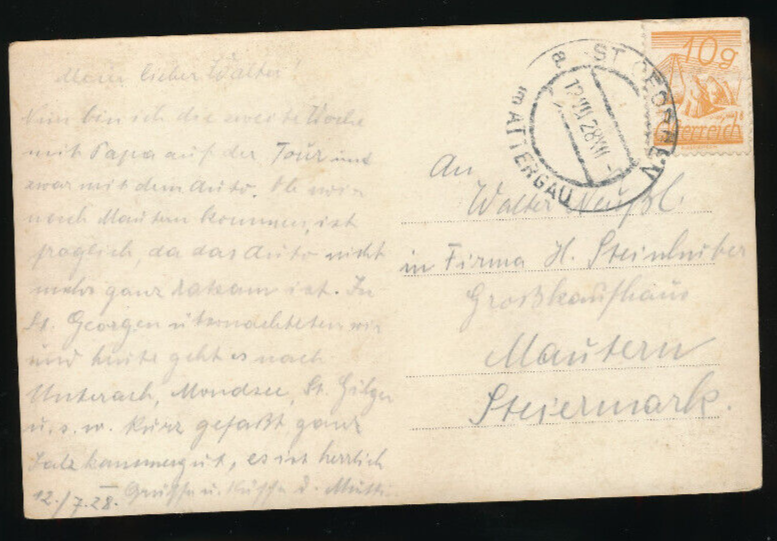 Mein lieber Walter!
Nun bin ich die zweite Woche
mit Papa auf der Tour und
zwar mit dem Auto. Ob wir
nach Mautern kommen, ist
fraglich, da das Auto nicht
mehr ganz ratsam ist. In
St. Georgen übernachteten wir
und heute geht es nach
Unterach, Mondsee, St. Gilgen
u. s. w. kurz gefaßt ganz
Salzkammergut, es ist herrlich
12./7.28. Grüsse u. Küsse d. Mutti
10g
Österreich
ST. GEORGEN
IM ATTERGAU
a
An
Walter
in Firma H. Steinhuber
Großkaufhaus
Mautern
Steiermark.